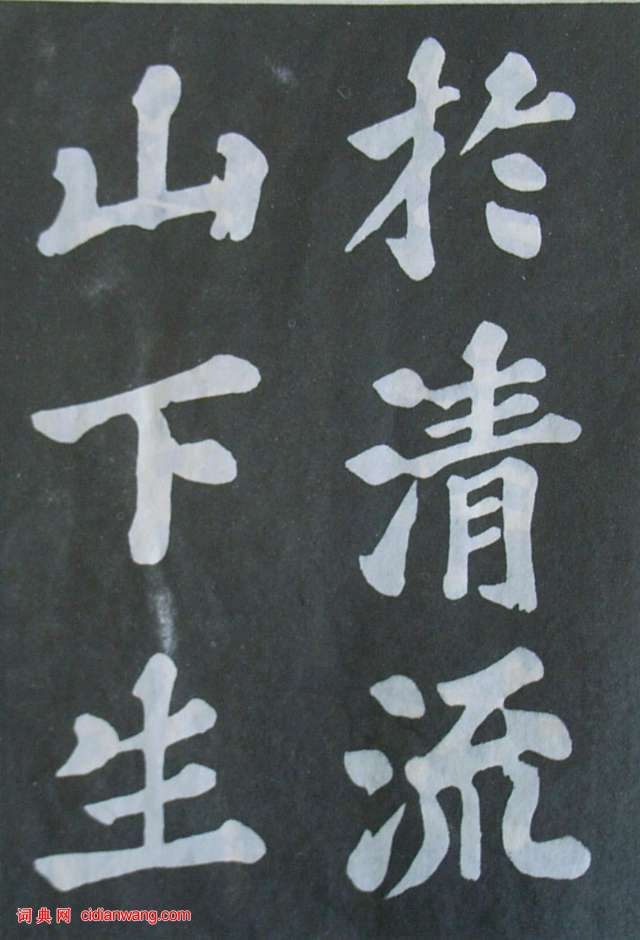 於清流
山下生
词典网 cidianwang.com